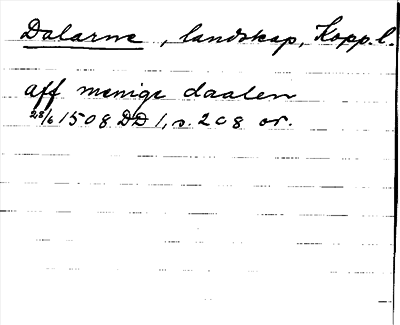 Dalarne, landskap, Kopp.l.
aff menige daalen
28/6 1508 DD 1, s. 208 or.